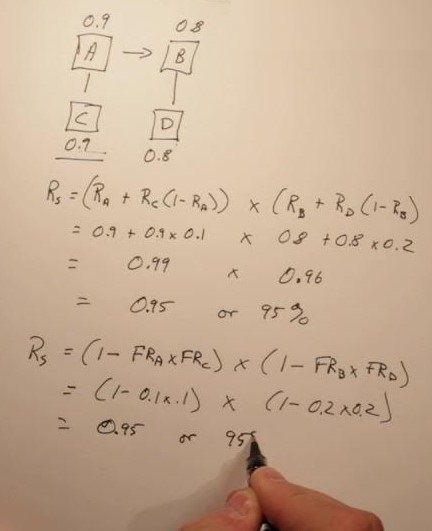 0.9 0.8
A → B
C D
0.9
0.8
Rs = (RA + RC(1-RA)) x (RB + RD(1-RB)
= 0.9 + 0.9 x 0.1 x 0.8 + 0.8 x 0.2
= 0.99 x 0.96
= 0.95 or 95%
Rs = (1- FRA x FRC) x (1- FRB x FRD)
= (1- 0.1 x .1) x (1- 0.2 x 0.2)
= 0.95 or 95